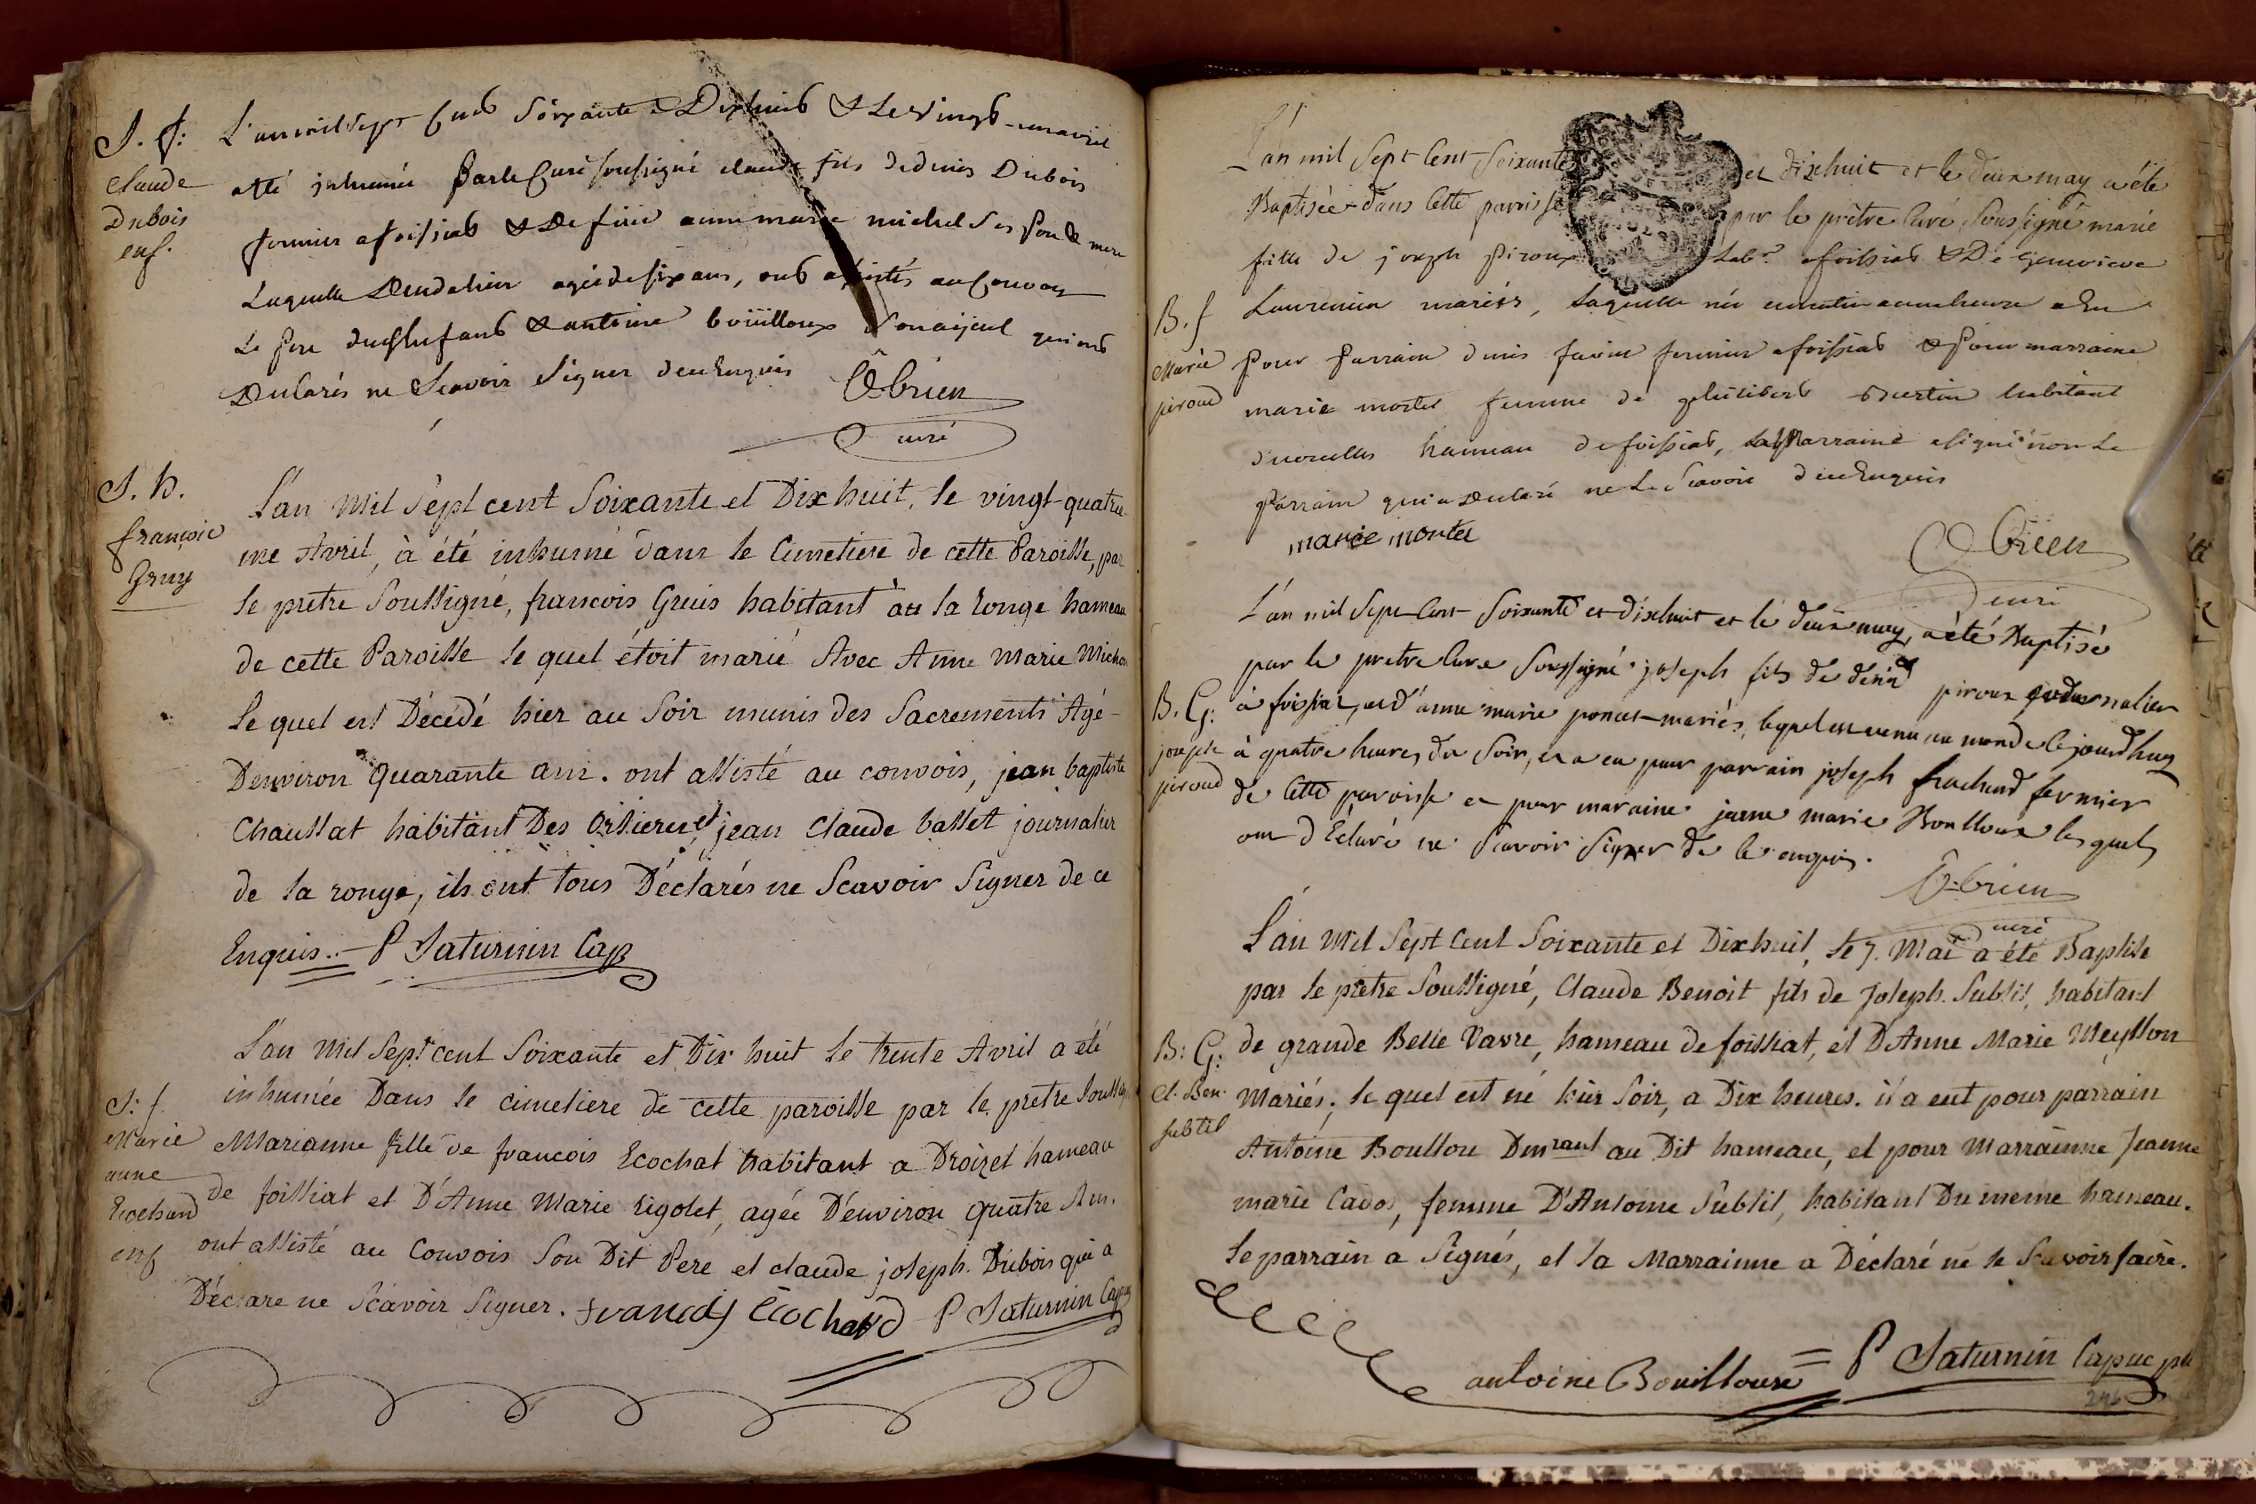 S. f.
Claude
Dubois
enf.
L'an mil sept Cens Soixante & Dixhuit & Le vingt-un avril
a été inhumé par le Curé soussigné claude fils de denis Dubois
fermier a foissiat & De feüe anne marie michel Ses Pere & mere
Laquelle agé de six ans, ont assistés au Convoy
Le Pere & antoine boüilloux Son aÿeul qui ont
Declarés ne Scavoir Signer de ce Enquis
Obrien
curé
S. h.
françois
Gruy
L'an Mil Sept cent Soixante et Dix huit, le vingt-quatrie-
me Avril, à été inhumé dans le Cimetiere de cette Paroisse, par
le pretre Soussigné, francois Greüs habitant au la ronge hameau
de cette Paroisse le quel étoit marié Avec Anne Marie Michon
le quel est Décédé hier au Soir munis des Sacrements Agé-
D'environ quarante ans. ont assisté au convois, jean baptiste
Chaussat habitant Des et jean claude bassët journalier
de la ronge, ils ont tous Déclarés ne Scavoir Signer de ce
Enquis. P Saturnin Cap
S. f.
Marie
anne
Ecochard
enf
L'an Mil Sept cent Soixante et Dix huit le trente Avril a été
inhumée Dans le cimetiere de cette paroisse par le pretre Soussigé
Marianne fille de francois Ecochat habitant a Droizet hameau
de foissiat et D'Anne Marie rigolet, agée D'environ quatre Ans.
ont assisté au Convois Son Dit Pere et claude joseph. Dubois qui a
Déclare ne Scavoir Signer. francois Ecochard P Saturnin Cap
L'an mil Sept Cent Soixante et dixhuit et le deux may a été
Baptisée dans Cette parroisse par le prêtre Curé Soussigné marie
fille de joseph piroux Labr. a foissiat & De Genevieve
B. f
Marie
piroud
Laurencin mariés, Laquelle née a une heure a Eu
Pour Parrain denis fermier a foissiat & Pour marraine
marie montet femme de philibert habitant
hameau de foissiat, La Marraine a signé non Le
Parrain qui a Declaré ne Le Scavoir de ce Enquis
marie montet
Obrien
curé
L'an mil Sept Cent Soixante et dixhuit et le deux may, a été Baptisé
par le pretre Curé Soussigné joseph fils de denis piroux journalier
B. G:
joseph
piroud
à foissiat, et d'anne marie poncet mariés, lequel est venu au monde le jourd'huy
à quatre heures du Soir, et a eu pour parrain joseph frachend fermier
de Cette paroisse et pour maraine jaene marie Boulloux les quels
ont déclaré ne Scavoir Signer de ce enquis.
Obrien
curé
L'an Mil Sept Cent Soixante et Dixhuit, le 7. Mai a été Baptisé
par le pretre Soussigné, Claude Benoit fils de Joseph. Subtil, habitant
B: G:
Cl. Ben.
subtil
de grande Belle Vavre, hameau de foissiat, et D'Anne Marie Meysson
Mariés. le quel est né hier Soir, a Dix heures. il a eut pour parrain
Antoine Boullou Dmrant au Dit hameau, et pour Marrainne Jeanne
marie Cados, femme D'Antoine Subtil, habitant Du meme hameau.
le parrain a Signés, et la Marrainne a Déclaré ne le Scavoir faire.
antoine Bouilloux P Saturnin Capuc ptr
246